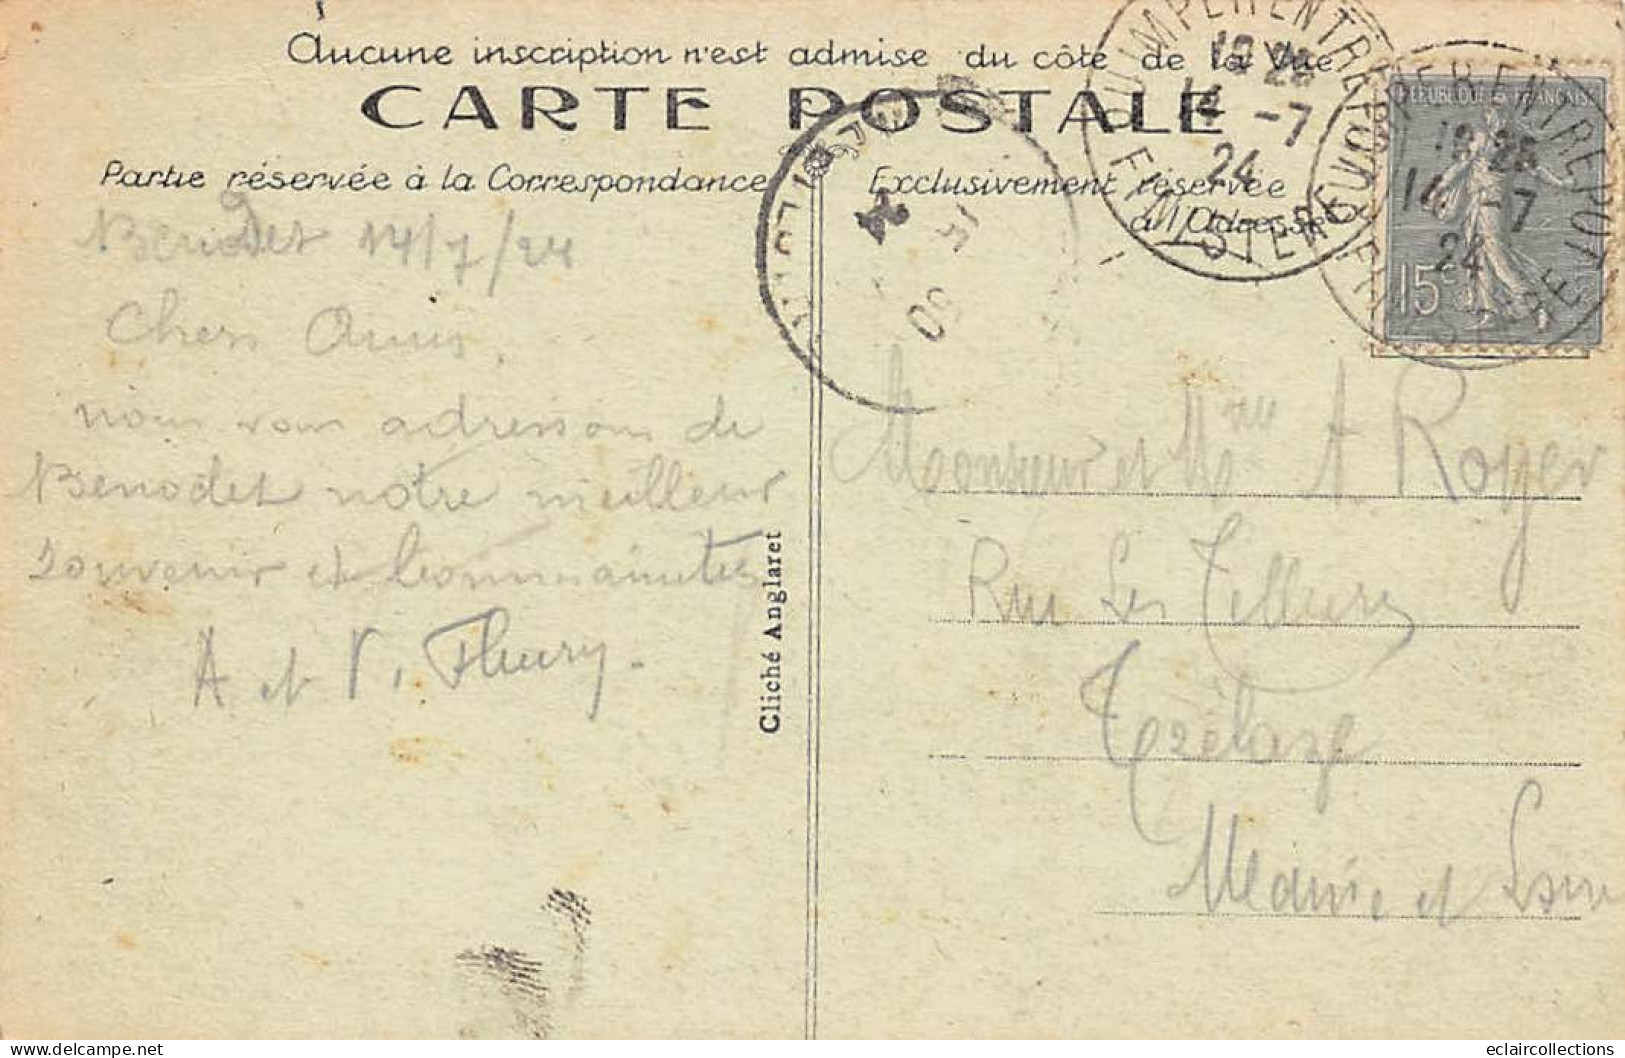 Aucune inscription n'est admise du côté de la Vue
CARTE POSTALE
Partie réservée à la Correspondance
Exclusivement réservée
à l'Adresse
QUIMPER ENTREPOT
FINISTERE
18 25
14 -7
24
QUIMPER ENTREPOT
FINISTERE
18 25
14 -7
24
REPUBLIQUE FRANÇAISE
15c
15
30
Benodet 14/7/24
Chers Amis,
nous vous adressons de
Benodet notre meilleur
souvenir et
A et V. Fleury.
Cliché Anglaret
Monsieur et Mme A Royer
Rue Les
Trélazé
Maine et Loire
eclaircollections